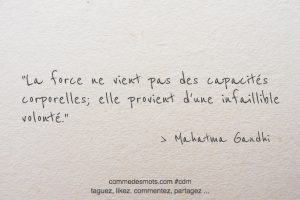 "La force ne vient pas des capacités
corporelles; elle provient d'une infaillible
volonté."
> Mahatma Gandhi
commedesmots.com #cdm
taguez, likez, commentez, partagez ...